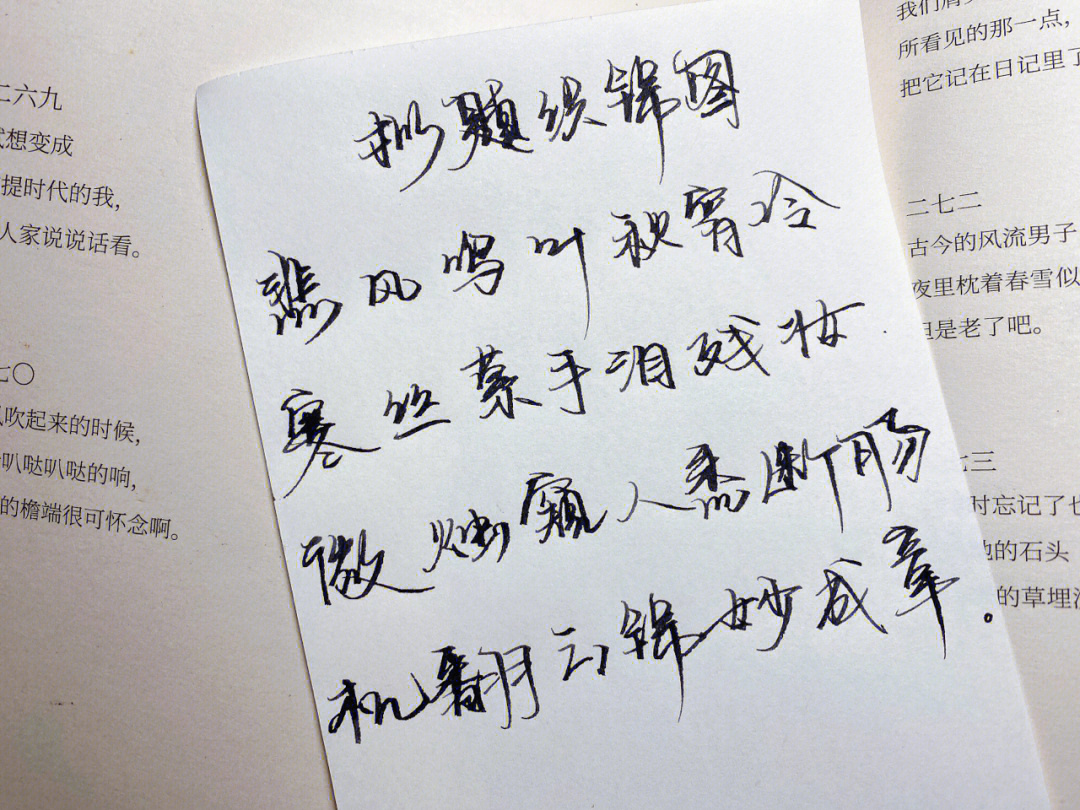 二六九
想变成
提时代的我,
人家说说话看。
七〇
吹起来的时候,
叭哒叭哒的响,
的檐端很可怀念啊。
拟题织锦图
悲风鸣叶秋宵冷
寒丝萦手泪残妆
微烛窥人愁断肠
机翻云锦妙成章。
我们肩
所看见的那一点,
把它记在日记里了
二七二
古今的风流男子
夜里枕着春雪似
但是老了吧。
七三
时忘记了也
的石头
的草埋